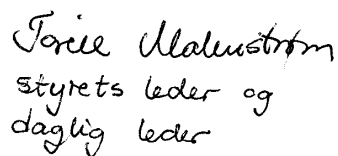 Malmstrøm
styrets leder og
daglig leder